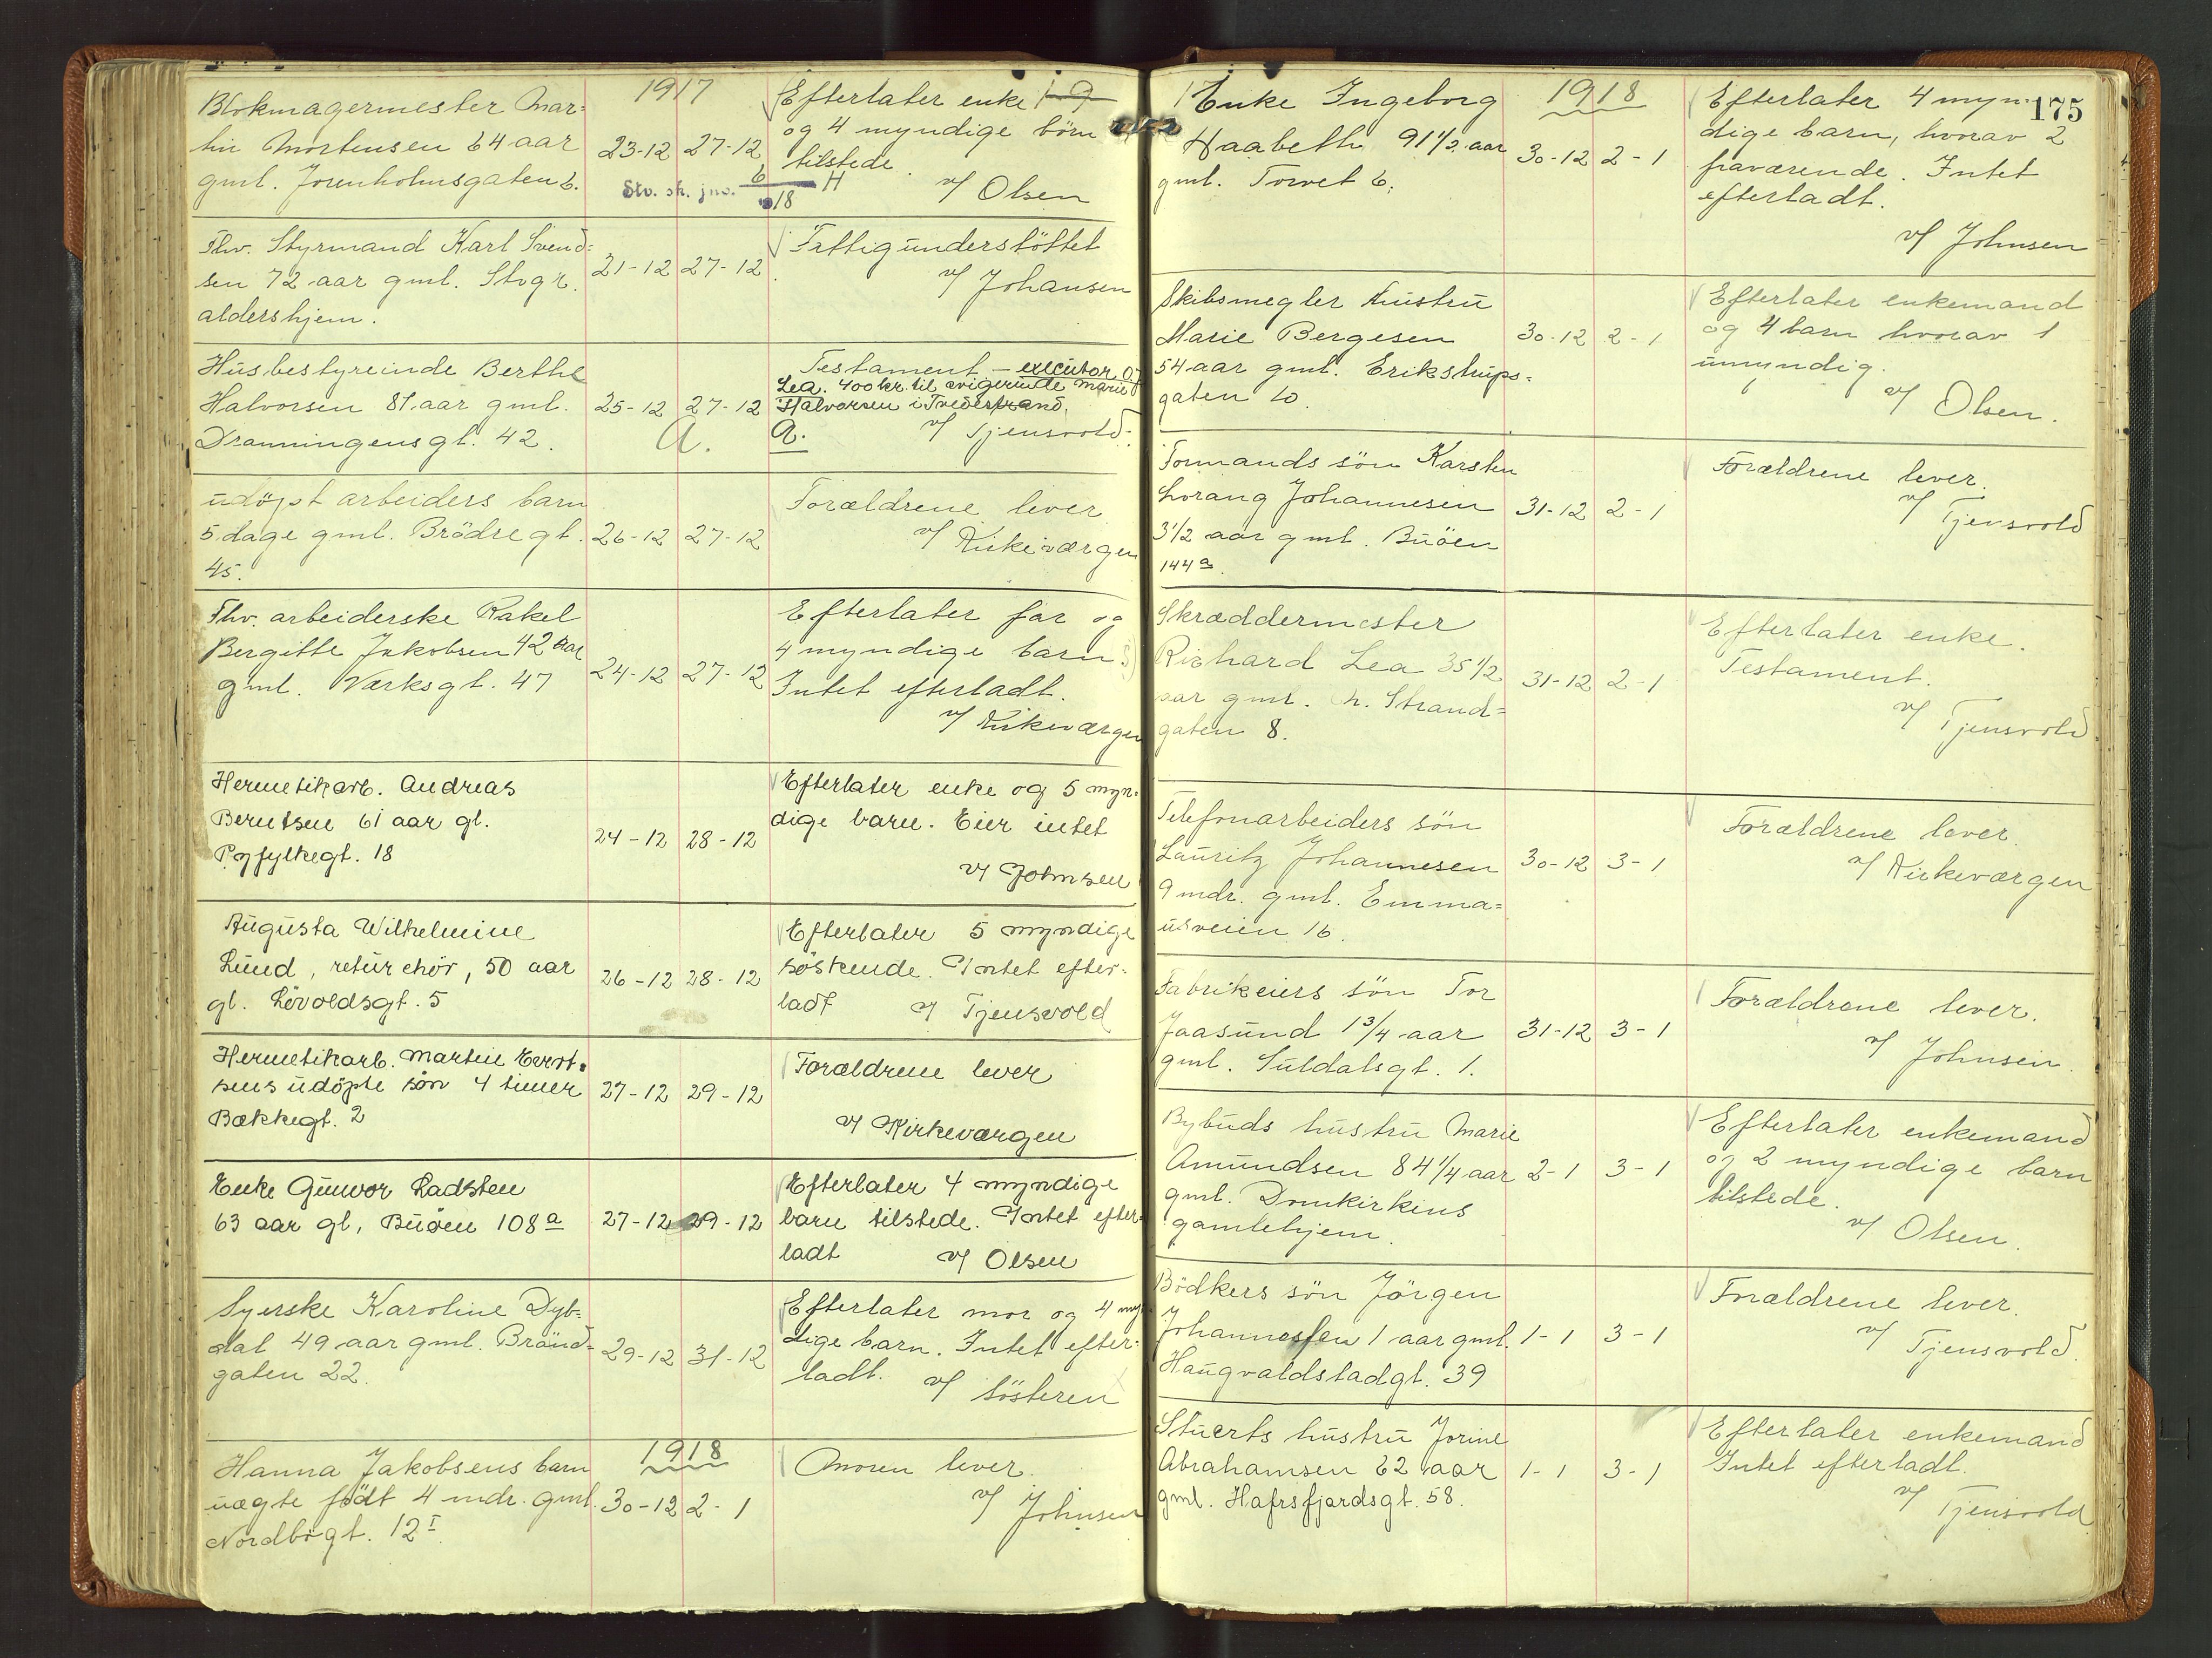 1917
Blokmagermester Mar=
tin Mortensen 64 aar
gml. Jorenholmsgaten 6.
23-12 27-12
Stv. sk. jno. 6/1918 H
Efterlater enke
og 4 myndige börn
tilstede.
v/ Olsen
Fhv. Styrmand Karl Svend=
sen 72 aar gml. Stvgr.
aldershjem.
21-12 27-12
Fattigunderstöttet
v/ Johansen
Husbestyreinde Berthe
Halvorsen 81 aar gml.
Dronningensgt. 42.
25-12 27-12
A.
Testament - executor O.
Lea. 400 kr. til svigerinde Marie
Halvorsen i Tvedestrand.
A. v/ Tjensvold.
udöpt arbeiders barn
5 dage gml. Brödregt.
45.
26-12 27-12
Forældrene lever
v/ Kirkeværgen
Fhv. arbeiderske Rakel
Bergitte Jakobsen 42 aar
gml. Værksgt. 47
24-12 27-12
Efterlater far og
4 myndige barn
Intet efterladt.
v/ Kirkeværgen
Hermetikarb. Andreas
Berntsen 61 aar gl.
Ryfylkegt. 18
24-12 28-12
Efterlater enke og 5 myn=
dige barn. Eier intet
v/ Johnsen
Augusta Wilhelmine
Lund, retur chör, 50 aar
gl. Lövoldsgt. 5
26-12 28-12
Efterlater 5 myndige
söskende. Intet efter-
ladt v/ Tjensvold
Hermetikarb. Martin Evert=
sens udöpte sön 4 timer
Bækkegt. 2
27-12 29-12
Forældrene lever
v/ Kirkeværgen
Enke Gunvor Ladsten
63 aar gl, Buöen 108 a
27-12 29-12
Efterlater 4 myndige
barn tilstede. Intet efter-
ladt v/ Olsen
Syerske Karoline Dyb=
dal 49 aar gml. Bränd=
gaten 22.
29-12 31-12
Efterlater mor og 4 myn
dige barn. Intet efter=
ladt. v/ Søsteren
1918
Hanna Jakobsens barn
uægte födt 4 mdr. gml.
Nordbögt. 12 I
30-12 2-1
Moren lever.
v/ Johnsen
175
1918
Enke Ingeborg
Haabeth 91 1/2 aar
gml. Torvet 6.
30-12 2-1
Efterlater 4 myn=
dige barn, hvorav 2
fraværende. Intet
efterladt.
v/ Johnsen
Skibsmegler hustru
Marie Bergesen
54 aar gml. Erikstrups=
gaten 10.
30-12 2-1
Efterlater enkemand
og 4 barn hvorav 1
umyndig.
v/ Olsen.
Formands sön Karsten
Lorang Johannesen
3 1/2 aar gml. Buöen
144 a.
31-12 2-1
Forældrene lever.
v/ Tjensvold
Skræddermester
Richard Lea 35 1/2
aar gml. n. Strand=
gaten 8.
31-12 2-1
Efterlater enke.
Testament.
v/ Tjensvold.
Telefonarbeiders sön
Lauritz Johannesen
9 mdr. gml. Emma=
usveien 16.
30-12 3-1
Forældrene lever.
v/ Kirkeværgen
Fabrikeiers sön Tor
Jaasund 1 3/4 aar
gml. Suldalsgt. 1.
31-12 3-1
Forældrene lever.
v/ Johnsen.
Bybuds hustru Marie
Amundsen 84 1/4 aar
gml. Domkirkens
gamlehjem.
2-1 3-1
Efterlater enkemand
og 2 myndige barn
tilstede.
v/ Olsen.
Bödkers sön Jörgen
Johannessen 1 aar gml.
Haugvaldstadgt. 39
1-1 3-1
Forældrene lever.
v/ Tjensvold.
Stuerts hustru Jorine
Abrahamsen 62 aar
gml. Hafrsfjordsgt. 58.
1-1 3-1
Efterlater enkemand
Intet efterladt.
v/ Tjensvold